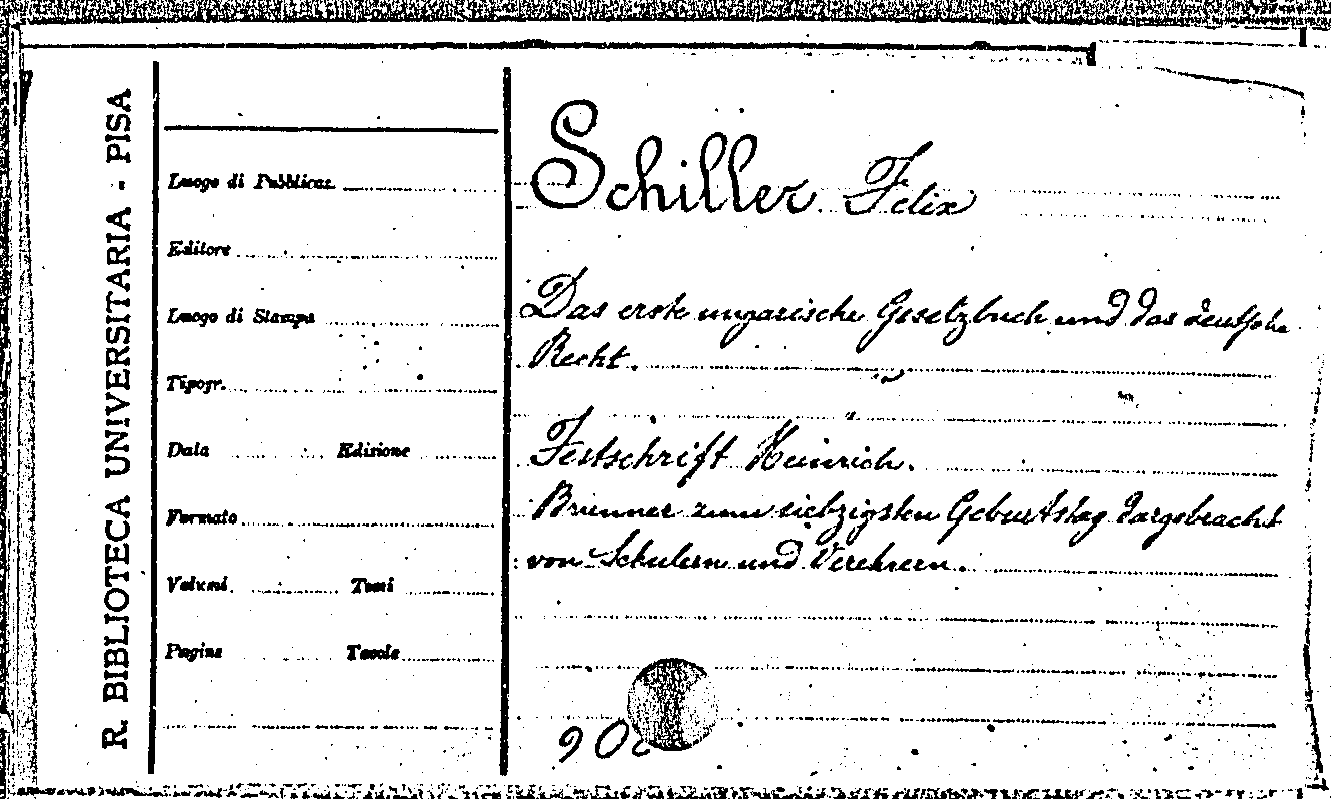 R. BIBLIOTECA UNIVERSITARIA - PISA
Luogo di Pubblicaz.
Editore
Luogo di Stampa
Tipogr.
Data Edizione
Formato
Volumi Tomi
Pagine Tavole
Schiller Felix
Das erste ungarische Gesetzbuch und das deutsche
Recht.
Festschrift Heinrich.
Brunner zum siebzigsten Geburtstag dargebracht
von Schulern und Verehrern.